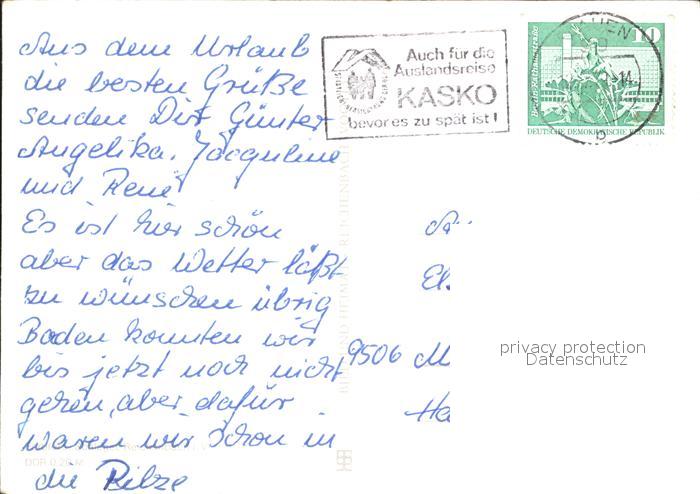 Aus dem Urlaub
die besten Grüße
senden Dir Günter
Angelika, Jacqueline
und René
Es ist hier schön
aber das Wetter läßt
zu wünschen übrig
Baden konnten wir
bis jetzt noch nicht
gehen, aber dafür
waren wir schon in
die Pilze
Auch für die
Auslandsreise
KASKO
bevor es zu spät ist!
10
DEUTSCHE DEMOKRATISCHE REPUBLIK
14
b
El
9506 M
Ha
privacy protection
Datenschutz
BILD UND HEIMAT REICHENBACH
DDR 0,20 M